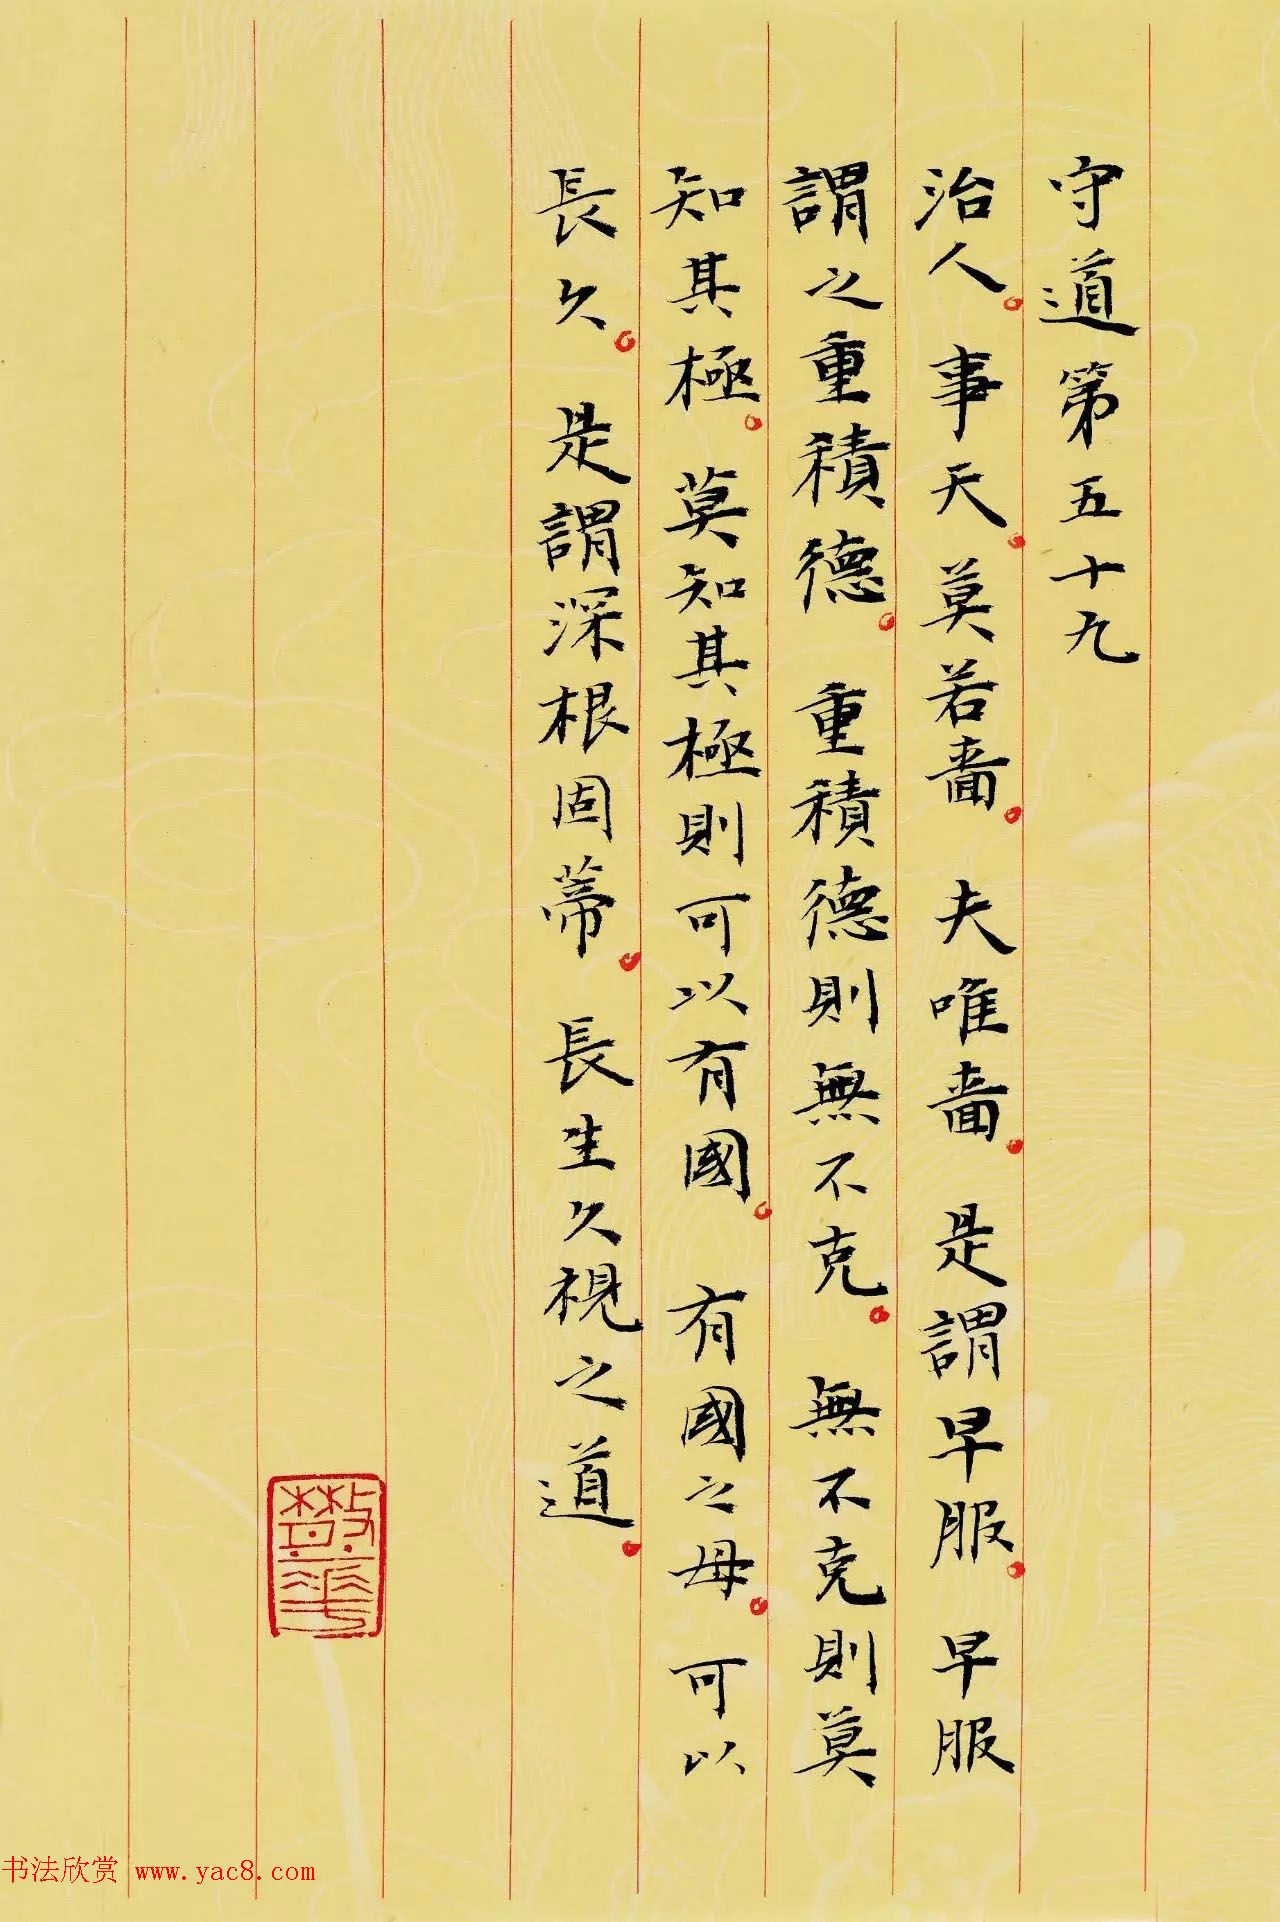 守道第五十九
治人。事天。莫若嗇。夫唯嗇。是謂早服。早服
謂之重積德。重積德則無不克。無不克則莫
知其極。莫知其極則可以有國。有國之母。可以
長久。是謂深根固蒂。長生久視之道。
书法欣赏 www.yac8.com